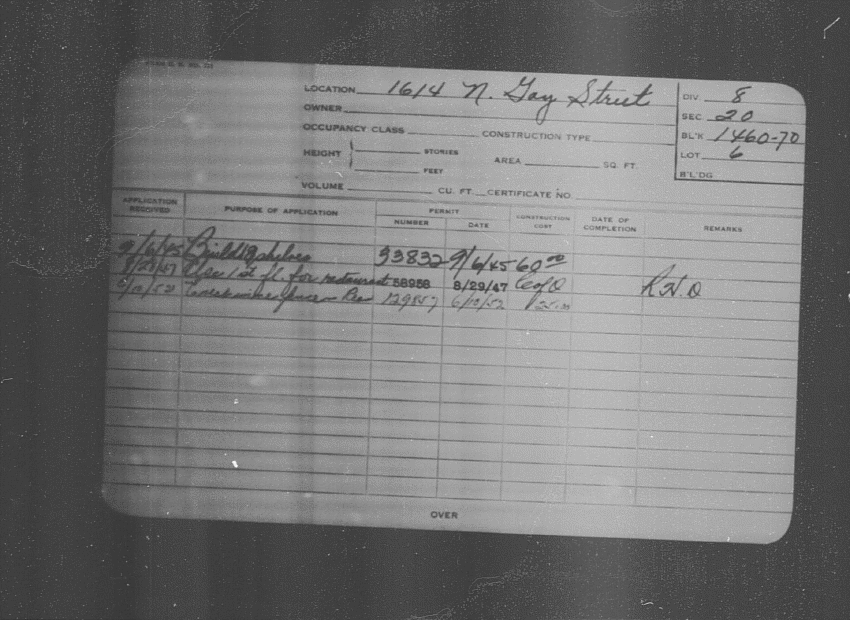 LOCATION 1614 N. Gay Street
DIV 8
OWNER
SEC 20
OCCUPANCY CLASS CONSTRUCTION TYPE
BL'K 1460-70
HEIGHT STORIES
FEET
AREA SQ. FT.
LOT 6
B'L'DG
VOLUME CU. FT. CERTIFICATE NO.
APPLICATION RECEIVED PURPOSE OF APPLICATION PERMIT NUMBER DATE CONSTRUCTION COST DATE OF COMPLETION REMARKS
9/6/45 Build shelves 33832 9/6/45 60.00
8/29/47 Use 1st fl. for restaurant 58958 8/29/47 C of O
6/10/52 6/10/52
OVER